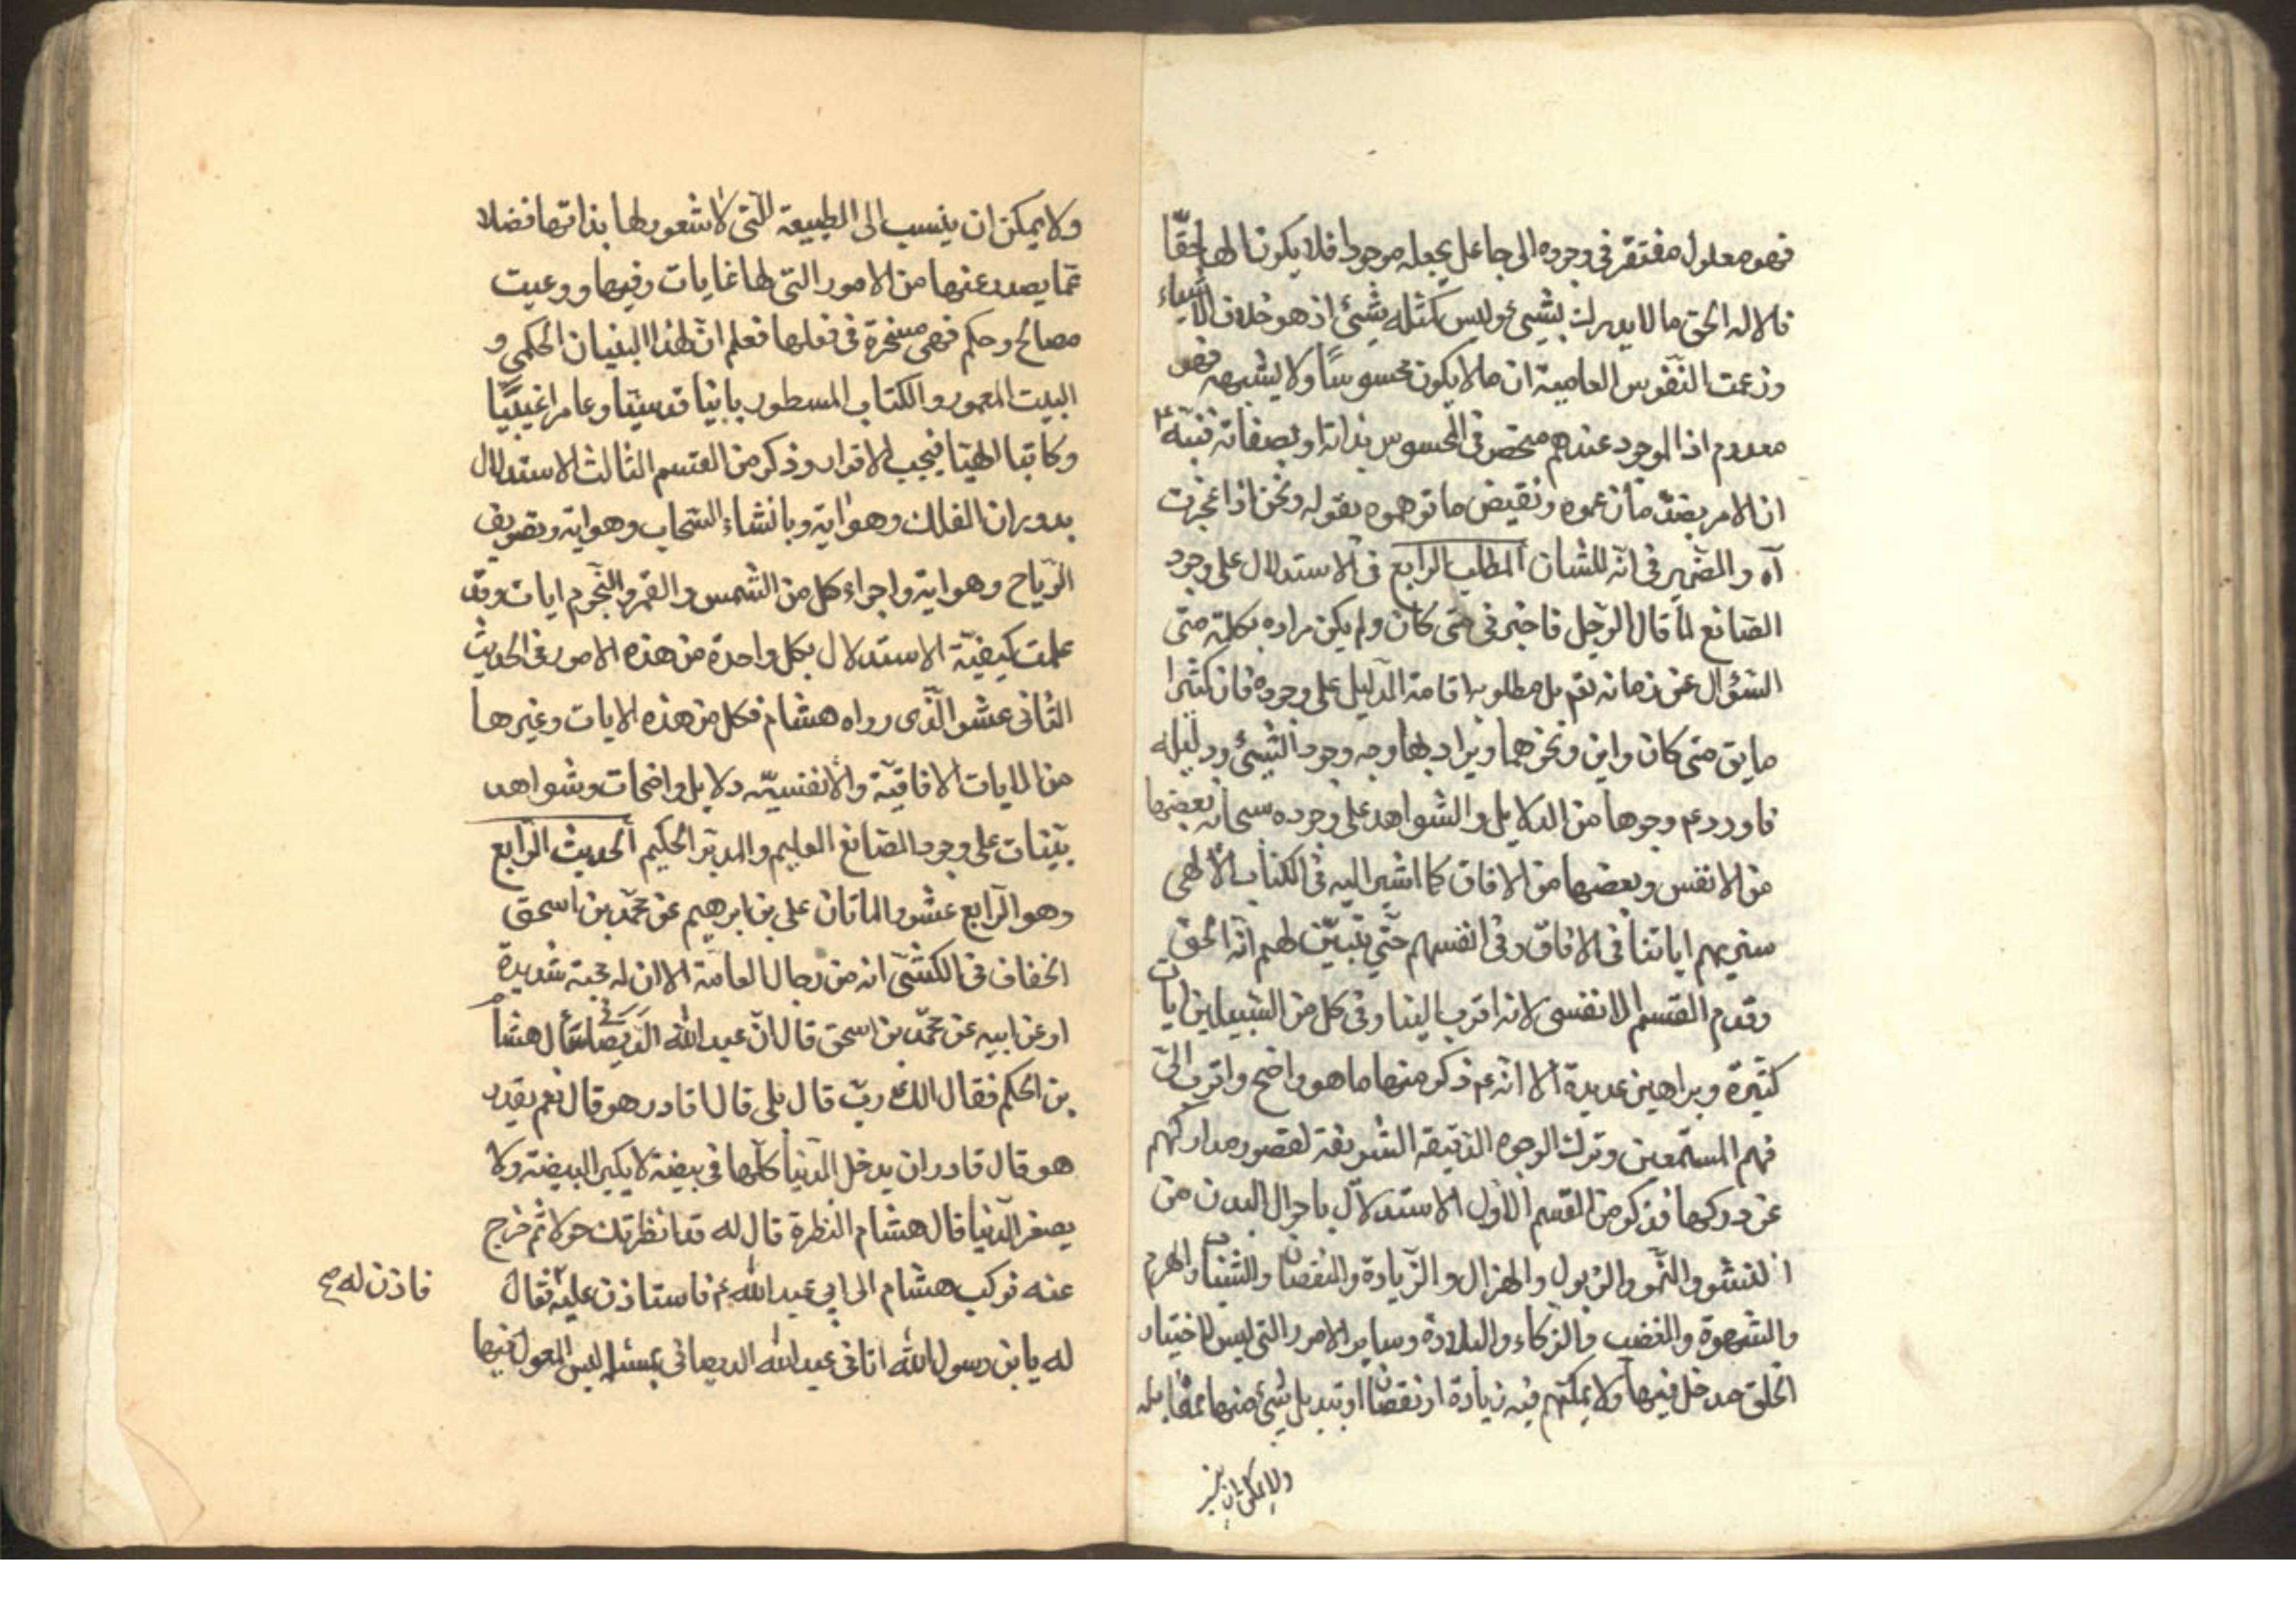 فهو معلول مفتقر في وجوده الى جاعل يجعله موجودا فلا يكون الها حقّا
فالاله الحق ما لا يدرك بشيئ وليس كمثله شيئ اذ هو خلاف الاشياء
وزعمت النّفوس العامية ان ما لا يكون محسوسًا ولا يشبهه فهو
معدوم اذ الموجود عندهم منحصر في المحسوس بذاته او بصفاته فنبّه ع
ان الامر بضدّ ما زعموه ونقيض ما توهموه بقوله ونحن اذا عجزت
آه والضّمير في انّه للشان المطلب الرابع في الاستدلال على وجود
الصّانع لمّا قال الرّجل فاخبرني متى كان ولم يكن مراده بكلمة متى
السّؤال عن زمانه تع بل مطلوبه اقامة الدّليل على وجوده فان كثيرا
ما يق متى كان واين ونحوهما ويراد بها وجه وجود الشيئ ودليله
فاورد ع وجوها من الدلايل والشواهد على وجوده سبحانه بعضها
من الانفس وبعضها من الافاق كما اشير اليه في الكتاب الالهي
سنريهم اياتنا في الافاق وفي انفسهم حتّي يتبيّن لهم انّه الحق
وقدم القسم الانفسي لانه اقرب الينا وفي كل من السّبيلين ايات
كثيرة وبراهين عديدة الا انه ع ذكر منها ما هو واضح واقرب الى
فهم المستمعين وترك الوجوه الدّقيقة الشريفة لقصور مداركهم
عن دركها فذكر من القسم الاول الاستدلال باحوال البدن من
النشو والنّمو والذبول والهزال والزّيادة والنقصان والشباب والهرم
والشهوة والغضب والذكاء والبلادة وساير الامور التي ليس لاختيار
الخلق مدخل فيها ولا يمكنهم فيه زيادة او نقصان او تبديل شيئ منها بمقابله
ولا يمكن ان ينسب
ولا يمكن ان ينسب الى الطبيعة التّى لا شعور لها بذاتها فضلا
عمّا يصدر عنها من الامور التي لها غايات وفيها روعيت
مصالح وحكم فهى مسخرة في فعلها فعلم انّ لهذا البنيان الحكمي و
البيت المعمور والكتاب المسطور بانيا قدسيّا وعامرا غيبيّا
وكاتبا الهيّا فيجب الاقرار وذكر من القسم الثالث الاستدلال
بدوران الفلك وهو اية وبانشاء السّحاب وهو اية وبتصريف
الرّياح وهو اية واجراء كل من الشمس والقمر والنّجوم ايات وقد
علمت كيفيّة الاستدلال بكل واحدة من هذه الامور في الحديث
الثاني عشر الّذى رواه هشام فكل من هذه الايات وغيرها
من الايات الافاقيّة والانفسيّة دلايل واضحات وشواهد
بيّنات على وجود الصّانع العليم والمدبّر الحكيم الحديث الرّابع
وهو الرّابع عشر والماتان علي بن ابرهيم عن محمّد بن اسحق
الخفاف في الكشّى انه من رجال العامّة الا ان له محبة شديدة
او عن ابيه عن محمّد بن اسحق قال انّ عبد الله الدّيصاني سأل هشام
بن الحكم فقال الك ربّ قال بلى قال اقادر هو قال نعم يقدر
هو قال قادر ان يدخل الدّنيا كلّها في بيضة لا يكبر البيضة ولا
يصغر الدّنيا قال هشام النظرة قال له قد انظرتك حولا ثم خرج
عنه فركب هشام الى ابي عبد الله ع فاستاذن عليه فقال
فاذن له صح
له يا بن رسول الله اتاني عبد الله الديصاني بمسئلة ليس المعول فيها